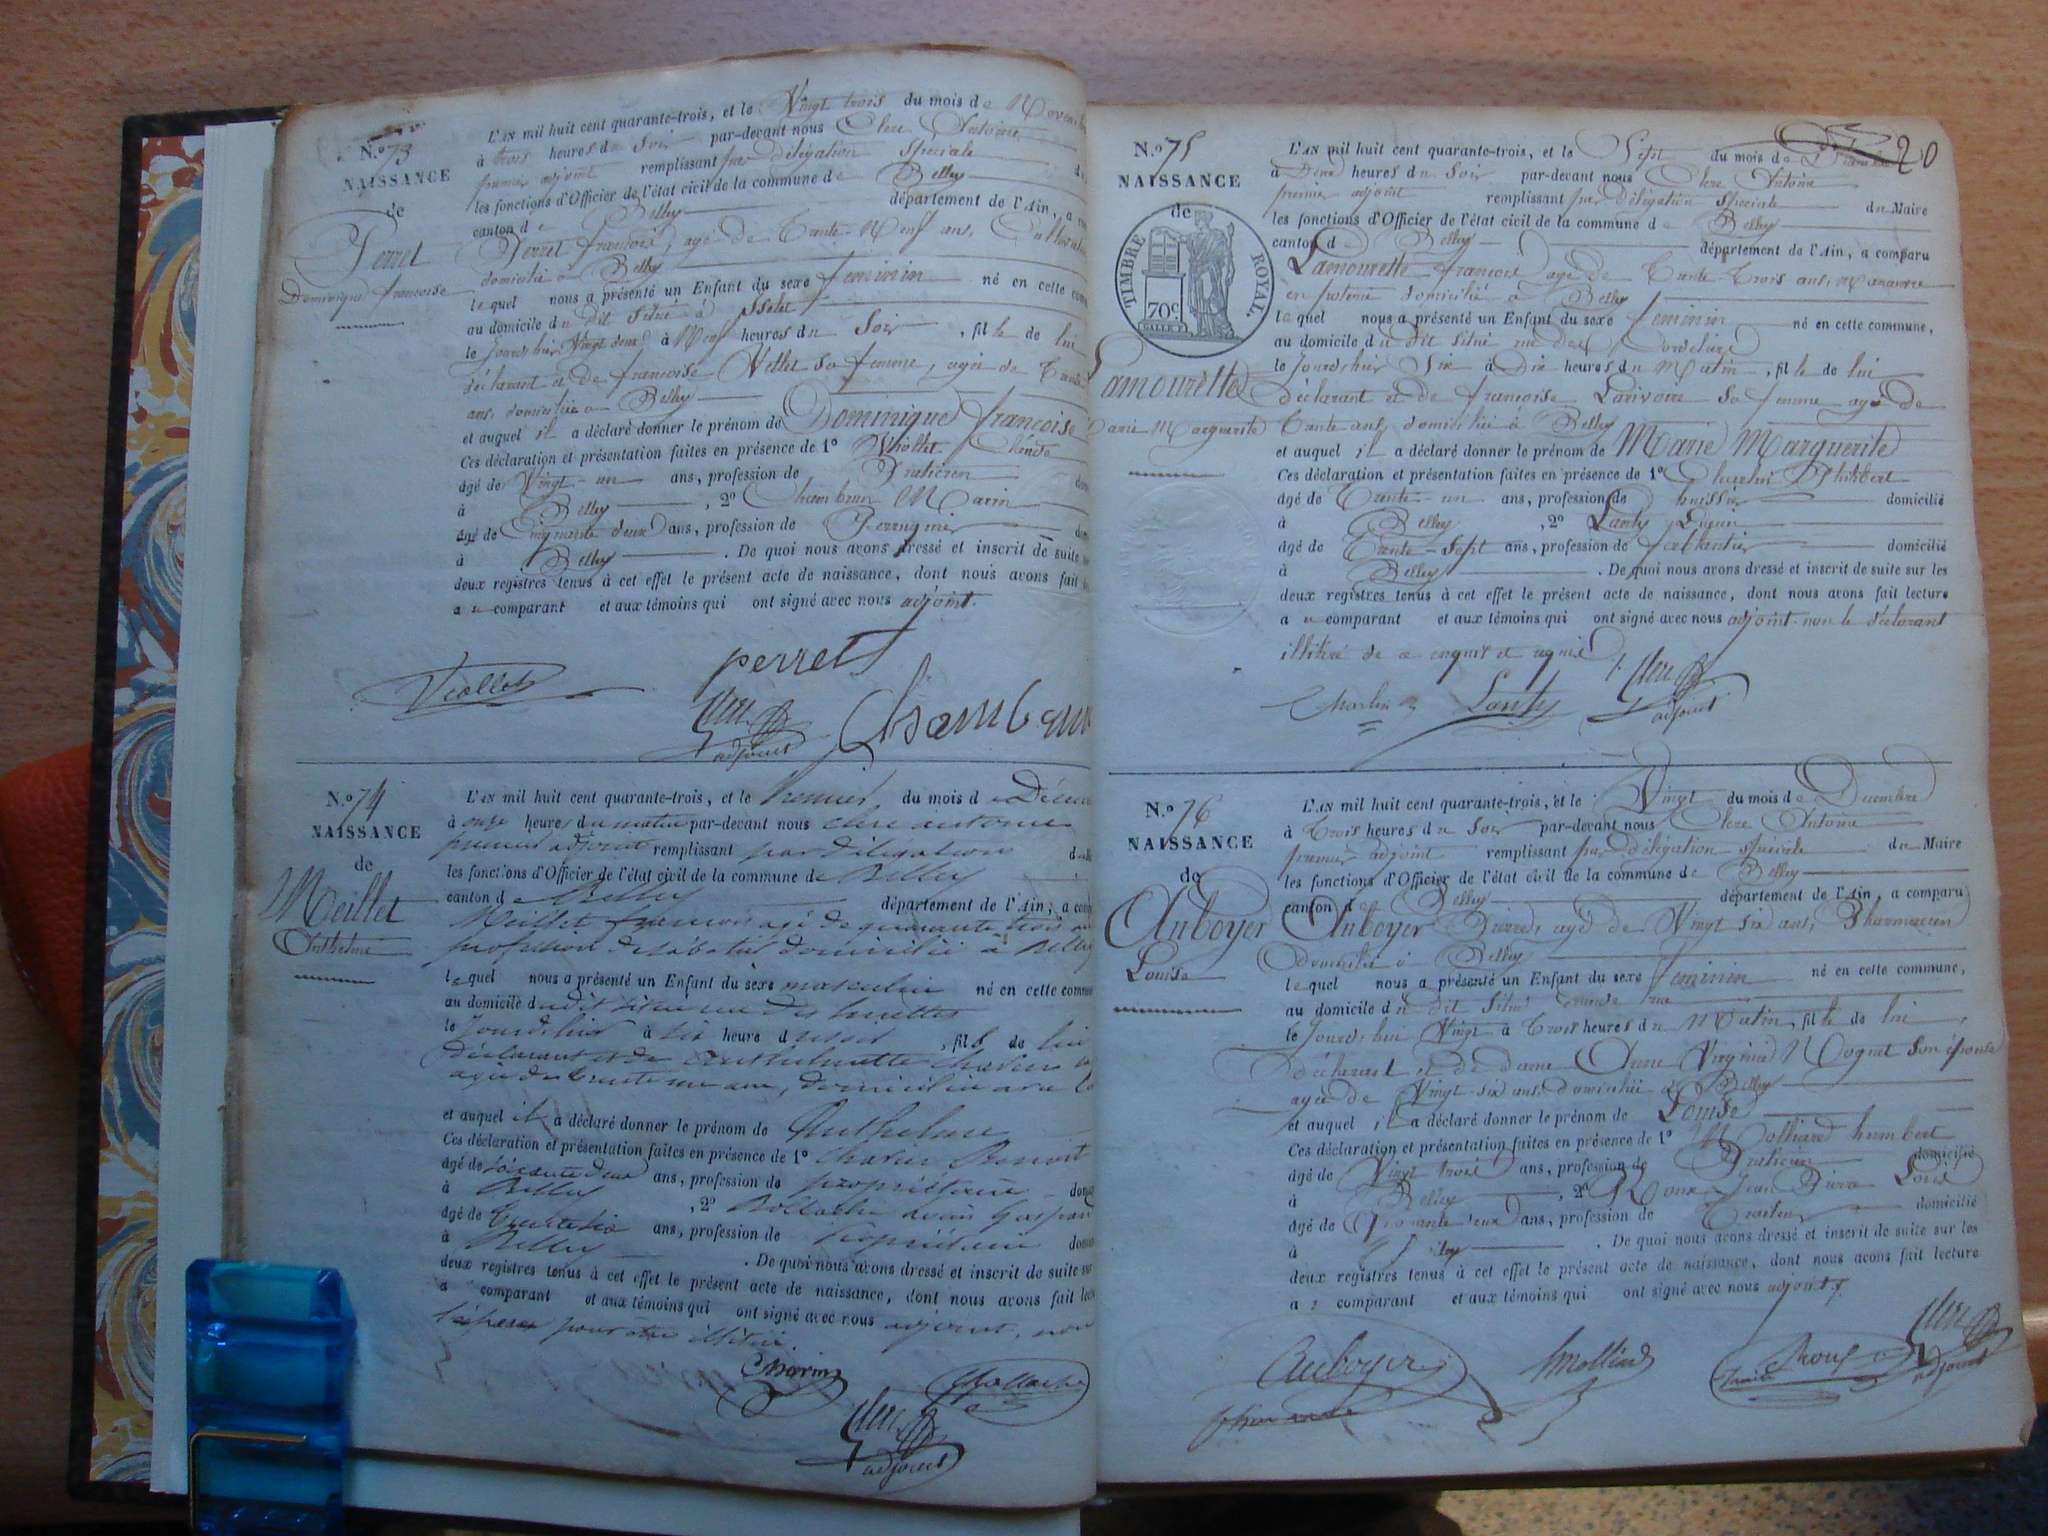 N.o 73
NAISSANCE
de
Perret
Dominique francoise
L'AN mil huit cent quarante-trois, et le Vingt trois du mois de
à trois heures du Soir par-devant nous Clerc Antoine
premier adjoint remplissant par délégation Speciale
les fonctions d'Officier de l'état civil de la commune de Belley
canton de Belley département de l'Ain, a
Perret francois, agé de trente Neuf ans,
domicilié à Belley
lequel nous a présenté un Enfant du sexe feminin né en cette
au domicile du dit Situé à
le Jourd'hier Vingt deux à Neuf heures du Soir, fille de lui
déclarant et de francoise Vellet sa femme, agée de
ans, domiciliée à Belley
et auquel il a déclaré donner le prénom de Dominique francoise
Ces déclaration et présentation faites en présence de 1o Viollet
âgé de Vingt-un ans, profession de Praticien
à Belley, 2o Marin
âgé de Cinquante deux ans, profession de
à Belley. De quoi nous avons dressé et inscrit de suite
deux registres tenus à cet effet le présent acte de naissance, dont nous avons fait
au comparant et aux témoins qui ont signé avec nous adjoint.
perret
Viollet
Clerc
adjoint
N.o 74
NAISSANCE
de
Meillet
Anthelme
L'AN mil huit cent quarante-trois, et le Premier du mois de
à onze heures du matin par-devant nous clerc antoine
premier adjoint remplissant par délégation
les fonctions d'Officier de l'état civil de la commune de Belley
canton de Belley département de l'Ain, a
Meillet francois agé de quarante trois
profession de domicilié à Belley
lequel nous a présenté un Enfant du sexe masculin né en cette
au domicile du dit situé rue des
le Jourd'hui à six heure du, fils de lui
déclarant et de
agée de trente ans, domiciliée avec
et auquel il a déclaré donner le prénom de Anthelme
Ces déclaration et présentation faites en présence de 1o Benoit
âgé de soixante deux ans, profession de propriétaire
à Belley, 2o
âgé de ans, profession de propriétaire
à Belley. De quoi nous avons dressé et inscrit de suite sur
deux registres tenus à cet effet le présent acte de naissance, dont nous avons fait
a comparant et aux témoins qui ont signé avec nous adjoint, non
pour être
Clerc
adjoint
20
N.o 75
NAISSANCE
de
TIMBRE ROYAL.
70c
Lamourette
Marie Marguerite
L'AN mil huit cent quarante-trois, et le Sept du mois de
à heures du Soir par-devant nous Clerc Antoine
premier adjoint remplissant par délégation Speciale du Maire
les fonctions d'Officier de l'état civil de la commune de Belley
canton de Belley département de l'Ain, a comparu
Lamourette francois agé de trente trois ans,
domicilié à Belley
lequel nous a présenté un Enfant du sexe feminin né en cette commune,
au domicile du dit situé rue des
le Jourd'hier Six à Dix heures du Matin, fille de lui
déclarant et de francoise Larivoire Sa femme agée de
trente ans, domiciliée à Belley
et auquel il a déclaré donner le prénom de Marie Marguerite
Ces déclaration et présentation faites en présence de 1o Charlin Philibert
âgé de trente-un ans, profession de huissier domicilié
à Belley, 2o Lanty
âgé de trente-Sept ans, profession de ferblantier domicilié
à Belley. De quoi nous avons dressé et inscrit de suite sur les
deux registres tenus à cet effet le présent acte de naissance, dont nous avons fait lecture
au comparant et aux témoins qui ont signé avec nous adjoint non le déclarant
illitéré de ce enquis et
Charlin
Lanty
Clerc
adjoint
N.o 76
NAISSANCE
de
Auboyer
Louise
L'AN mil huit cent quarante-trois, et le Vingt du mois de Décembre
à trois heures du Soir par-devant nous Clerc Antoine
premier adjoint remplissant par délégation spéciale du Maire
les fonctions d'Officier de l'état civil de la commune de Belley
canton de Belley département de l'Ain, a comparu
Auboyer Pierre, agé de Vingt six ans, Pharmacien
domicilié à Belley
lequel nous a présenté un Enfant du sexe feminin né en cette commune,
au domicile du dit situé grande rue
le Jourd'hui Vingt à trois heures du Matin, fille de lui
déclarant et de dame Anne Virginie Moquet Son épouse
agée de Vingt-six ans domiciliée à Belley
et auquel il a déclaré donner le prénom de Louise
Ces déclaration et présentation faites en présence de 1o Molliard humbert
âgé de Vingt trois ans, profession de Praticien domicilié
à Belley, 2o Roux Jean Pierre Louis
âgé de ans, profession de domicilié
à. De quoi nous avons dressé et inscrit de suite sur les
deux registres tenus à cet effet le présent acte de naissance, dont nous avons fait lecture
au comparant et aux témoins qui ont signé avec nous adjoint
Auboyer
Roux
Clerc
adjoint